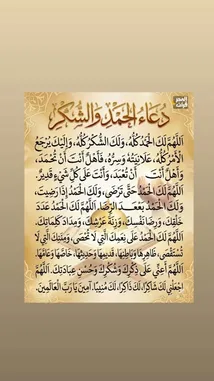 دُعَاءُ الحَمْدِ وَالشُّكْرِ
اللَّهُمَّ لَكَ الْحَمْدُ كُلُّهُ، وَلَكَ الشُّكْرُ كُلُّهُ، وَإِلَيْكَ يُرْجَعُ
الأَمْرُ كُلُّهُ، عَلَانِيَتُهُ وَسِرُّهُ، فَأَهْلٌ أَنْتَ أَنْ تُحْمَدَ،
وَأَهْلٌ أَنْتَ أَنْ تُعْبَدَ، وَأَنْتَ عَلَى كُلِّ شَيْءٍ قَدِيرٌ.
اللَّهُمَّ لَكَ الْحَمْدُ حَتَّى تَرْضَى، وَلَكَ الْحَمْدُ إِذَا رَضِيتَ،
وَلَكَ الْحَمْدُ بَعْدَ الرِّضَا، اللَّهُمَّ لَكَ الْحَمْدُ عَدَدَ
خَلْقِكَ، وَرِضَا نَفْسِكَ، وَزِنَةَ عَرْشِكَ، وَمِدَادَ كَلِمَاتِكَ.
اللَّهُمَّ لَكَ الْحَمْدُ عَلَى نِعَمِكَ الَّتِي لَا تُحْصَى، وَمِنَنِكَ الَّتِي لَا
تُسْتَقْصَى، ظَاهِرِهَا وَبَاطِنِهَا، قَدِيمِهَا وَحَدِيثِهَا، خَاصِّهَا وَعَامِّهَا.
اللَّهُمَّ أَعِنِّي عَلَى ذِكْرِكَ وَشُكْرِكَ وَحُسْنِ عِبَادَتِكَ. اللَّهُمَّ
اجْعَلْنِي لَكَ شَاكِرًا، لَكَ ذَاكِرًا، لَكَ مُنِيبًا. آمِينَ يَا رَبَّ الْعَالَمِينَ.